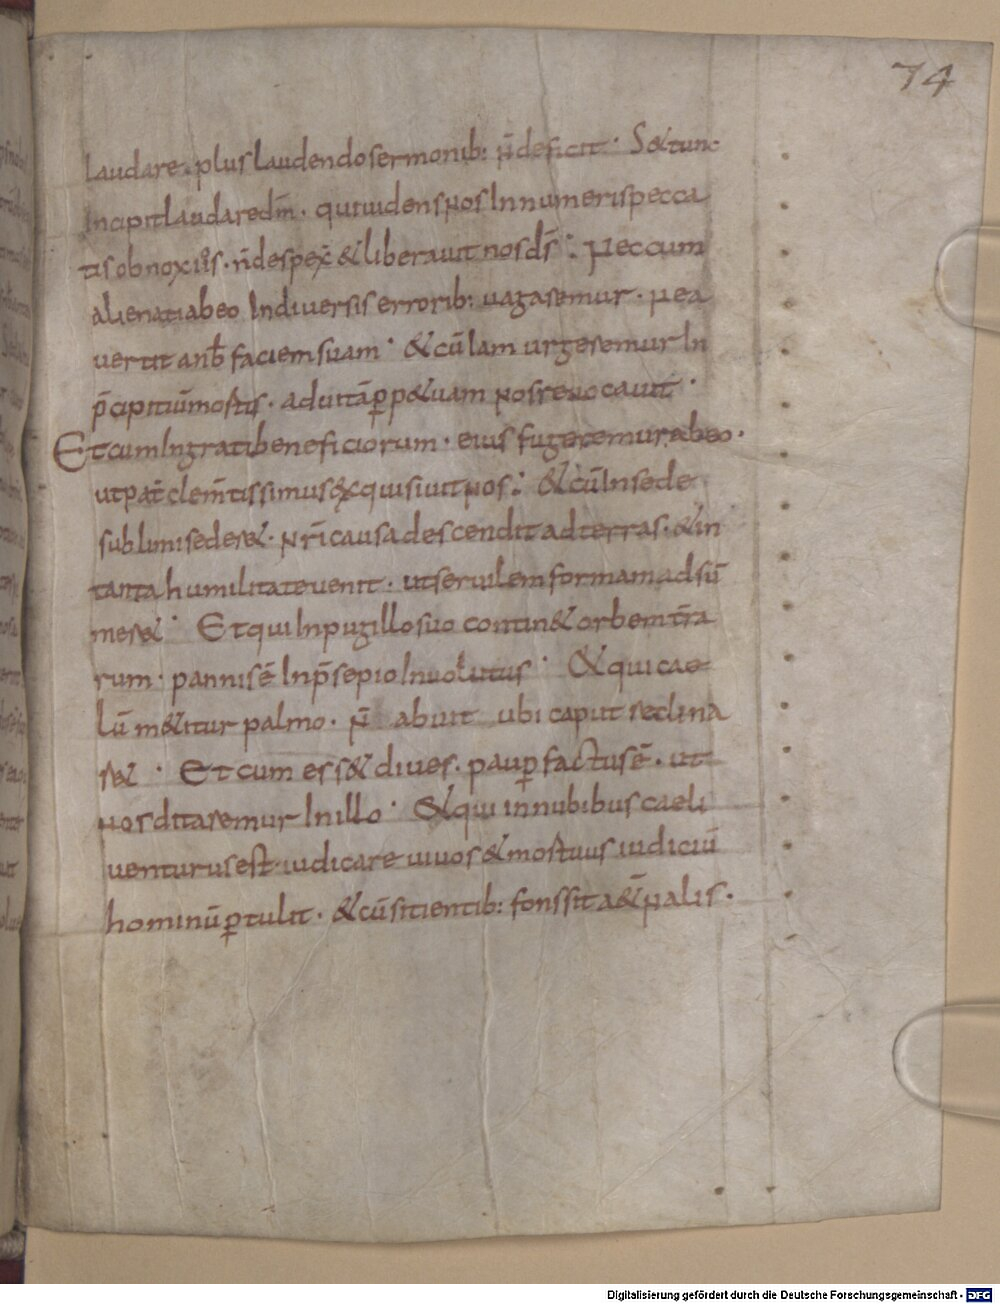 74
laudare. plus laudendo sermonib: n̄ deficit · S& tunc
incipit laudare dm̄. qui uidens nos Innumeris pecca
tis obnoxiis. n̄ despex̄ & liberauit nos ds̄ : Nec cum
alienati abeo Indiuersis errorib: uagaremur. Nea
uertit anb̄ faciem suam · & cū Iam urgeremur In
p̄cipitiū mortis. aduitā p̱p&uam nos reuocauit ·
Et cum Ingrati beneficiorum. eius fugeremur abeo.
ut pat̄ clem̄tissimus exquisiuit nos : & cū Insede
sublimi seder&. nr̄i causa descendit ad terras. & in
tanta humilitate uenit. ut seruilem formam adsū
mer& · Et qui Inpugillo suo contin& orbem tr̄a
rum. pannis ē Inp̄sepio Inuolutus · & qui cae
lū m&itur palmo. n̄ abuit ubi caput reclina
r& · Et cum ess& diues. paup̱ factus ē. ut
nos ditaremur Inillo · & qui in nubibus caeli
uenturus est. iudicare uiuos & mortuus iudiciū
hominū p̱tulit. & cū sitientib: fons sit a&̄nalis.
Digitalisierung gefördert durch die Deutsche Forschungsgemeinschaft - DFG